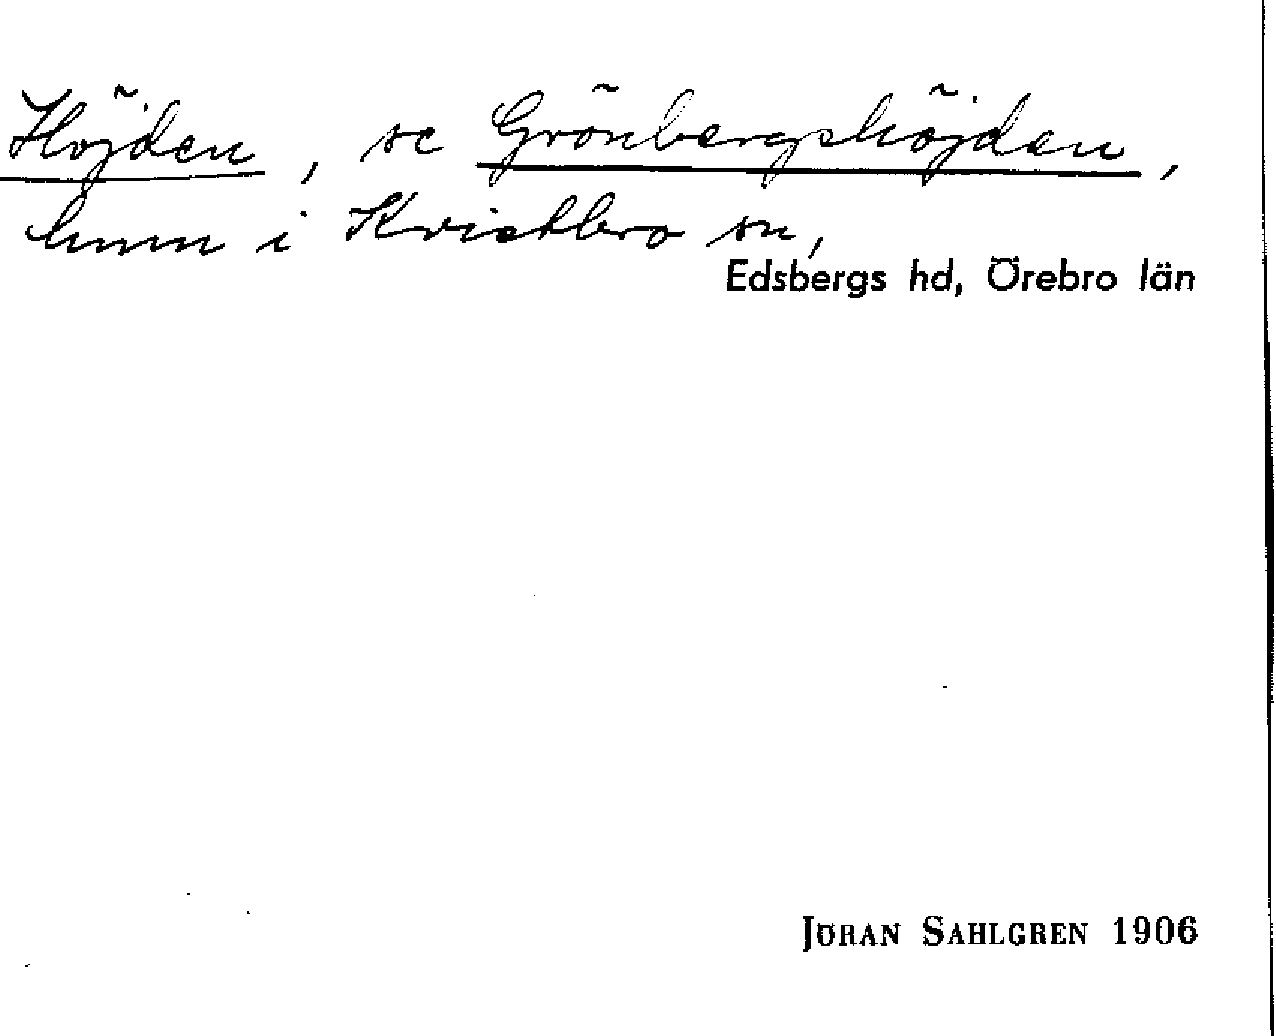 Höjden, se Grönbergshöjden,
hmn i Kvistbro sn,
Edsbergs hd, Örebro län
JÖRAN SAHLGREN 1906